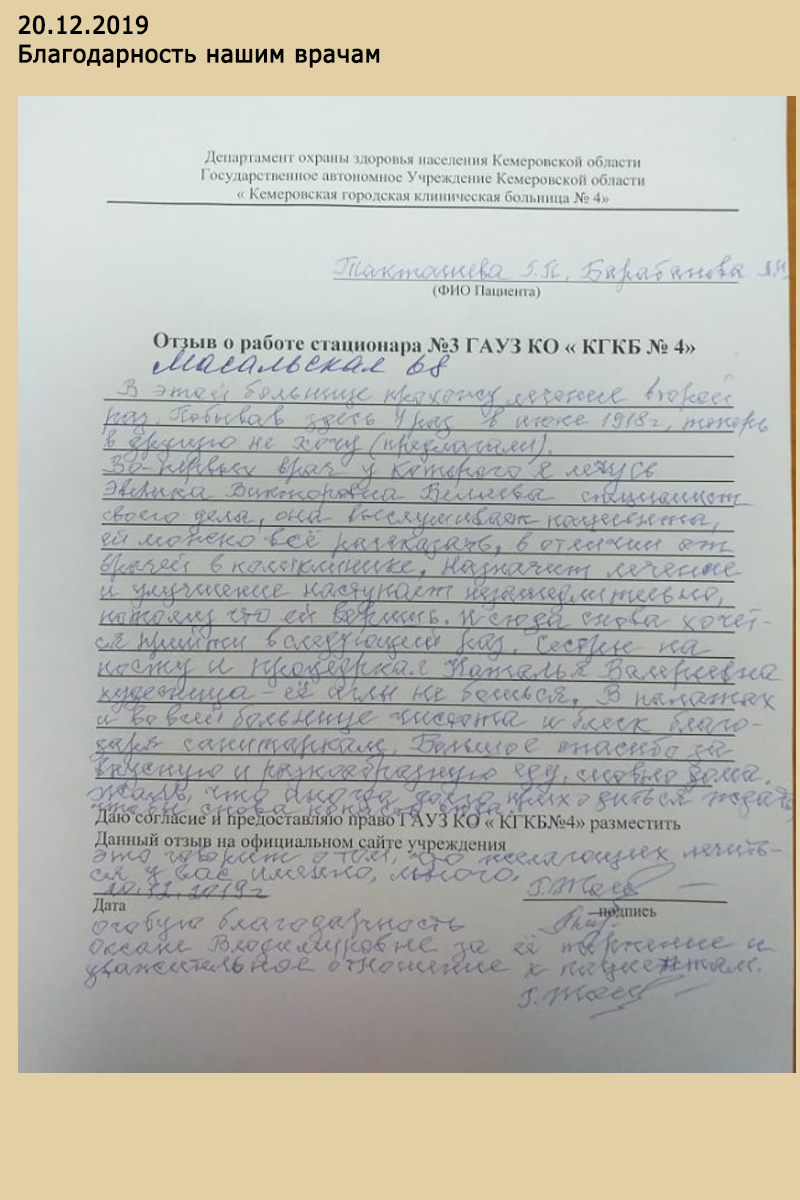 20.12.2019
Благодарность нашим врачам
Департамент охраны здоровья населения Кемеровской области
Государственное автономное Учреждение Кемеровской области
« Кемеровская городская клиническая больница № 4»
Такташева Г.П. Барабанова
(ФИО Пациента)
Отзыв о работе стационара №3 ГАУЗ КО « КГКБ № 4»
Масальская 68
В этой больнице прохожу лечение второй
раз. Побывав здесь 1 раз в июне 1918г, теперь
в другую не хочу (предлагали).
Во-первых врач у которого я лечусь
Эвелика Викторовна Беляева специалист
своего дела, она выслушивает пациента,
ей можно всё рассказать, в отличии от
врачей в поликлинике. Назначит лечение
и улучшение наступает незамедлительно,
потому что ей веришь. И сюда снова хочет-
ся прийти в следующий раз. Сестры на
посту и процедурная Наталья Валерьевна
кудесница - её иглы не боишься. В палатах
и во всей больнице чистота и блеск благо-
даря санитаркам. Большое спасибо за
вкусную и разнообразную еду, словно дома.
Жаль, что иногда долго приходиться ждать
чтобы снова попасть сюда.
Даю согласие и предоставляю право ГАУЗ КО « КГКБ№4» разместить
Данный отзыв на официальном сайте учреждения
Это говорит о том, что желающих лечить-
ся у вас именно, много.
20.12.2019г
Дата
подпись
Особую благодарность
Оксане Владимировне за её терпение и
уважительное отношение к пациентам.